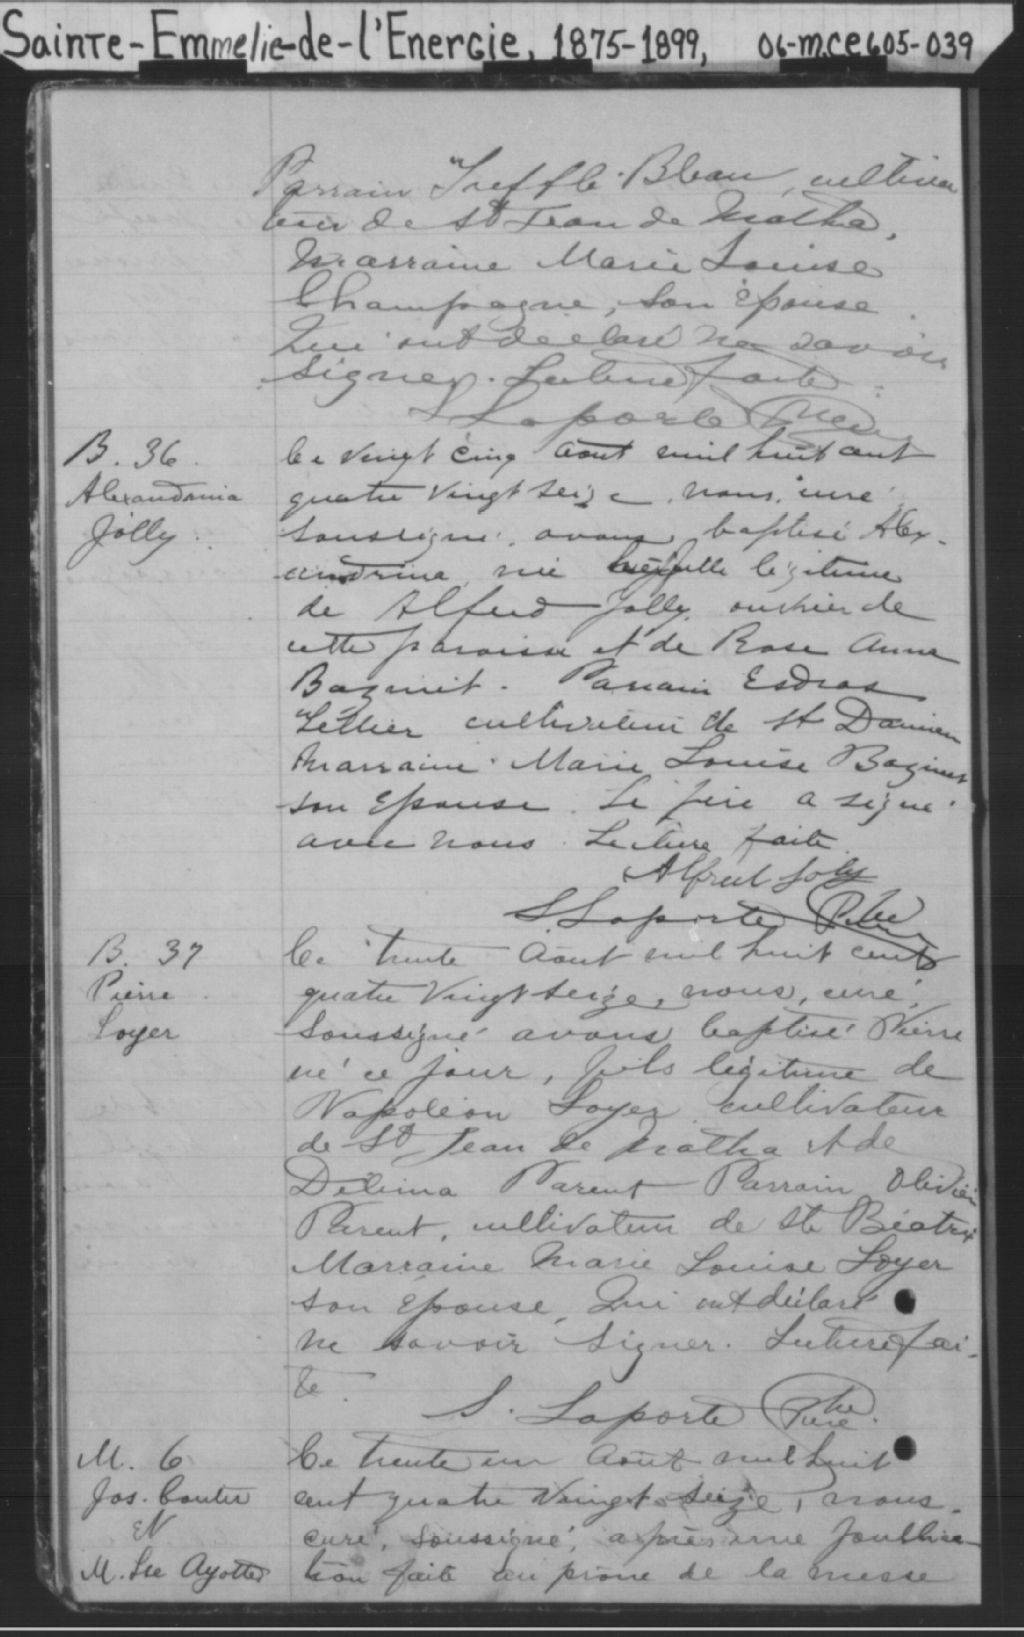 Sainte-Emmelie-de-l'Energie, 1875-1899, 06-mce605-039
Parrain Treffle Bleau, cultiva
teur de St Jean de Matha,
Marraine Marie Louise
Champagne, son épouse
Qui ont déclaré ne savoir
signer. Lecture faite
S Laporte Ptre
B. 36.
Alexandrina
Jolly.
Ce vingt cinq Août mil huit cent
quatre vingt seize, nous, curé
soussigné, avons baptisé Alex-
andrina, née fille légitime
de Alfred Jolly, ouvrier de
cette paroisse et de Rose Anna
Bazinet. Parrain Esdras
Tellier cultivateur de St Damien
Marraine Marie Louise Bazinet
son Epouse. Le père a signé
avec nous. Lecture faite.
Alfred Joly
S Laporte Ptre
B. 37
Pierre
Loyer
Ce trente Août mil huit cent
quatre Vingt seize, nous, curé,
Soussigné avons baptisé Pierre
né ce jour, fils légitime de
Napoléon Loyer cultivateur
de St Jean de Matha et de
Délima Parent Parrain Olivier
Parent, cultivateur de Ste Béatrix
Marraine Marie Louise Loyer
son Epouse, Qui ont déclaré
ne savoir signer. Lecture fai-
te.
S. Laporte Ptre Curé.
M. 6
Jos. Coutu
Et
M. Lse Ayotte
Ce trente un Août mil huit
cent quatre Vingt seize, nous,
curé, soussigné, après une publica-
tion faite au prone de la messe